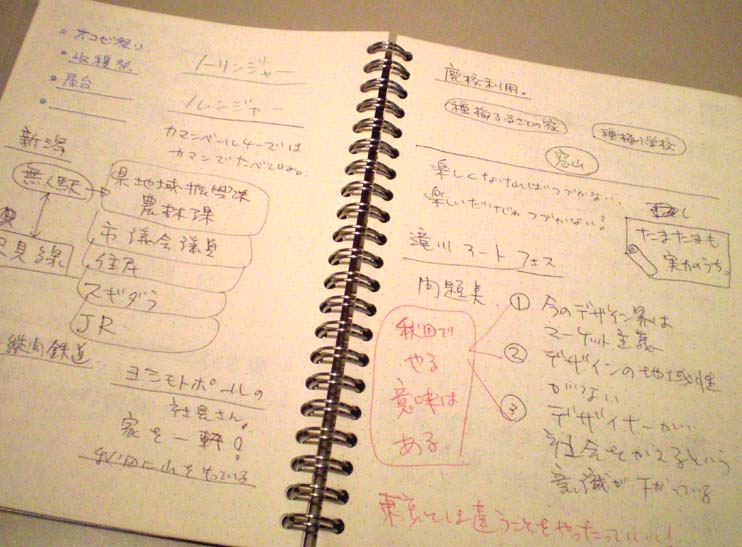 ・オコゼ祭り
・収穫祭
・屋台
・
ノーリンジャー
ノレンジャー
カマンベールチーズは
カマンでたべてよね。
新潟
無人駅
県地域振興課
農林課
市議会議員
住民
スギダラ
JR
只見線
縦内鉄道
ヨシモトポールの
社員さん。
家を一軒！
秋田に山をもっている
廃校利用。
種梅ふるさとの家
種梅小学校
窓山
楽しくなければつづかない、
楽しいだけじゃつづかない！
たまたまも
実力のうち。
滝川アートフェス
問題点
① 今のデザイン界は
マーケット主義
② デザインの地域性
がうない
③ デザイナーがい
社会をかえるという
意識が下がっている
秋田で
やる
意味は
ある。
東京とは違うことをやったっていい！